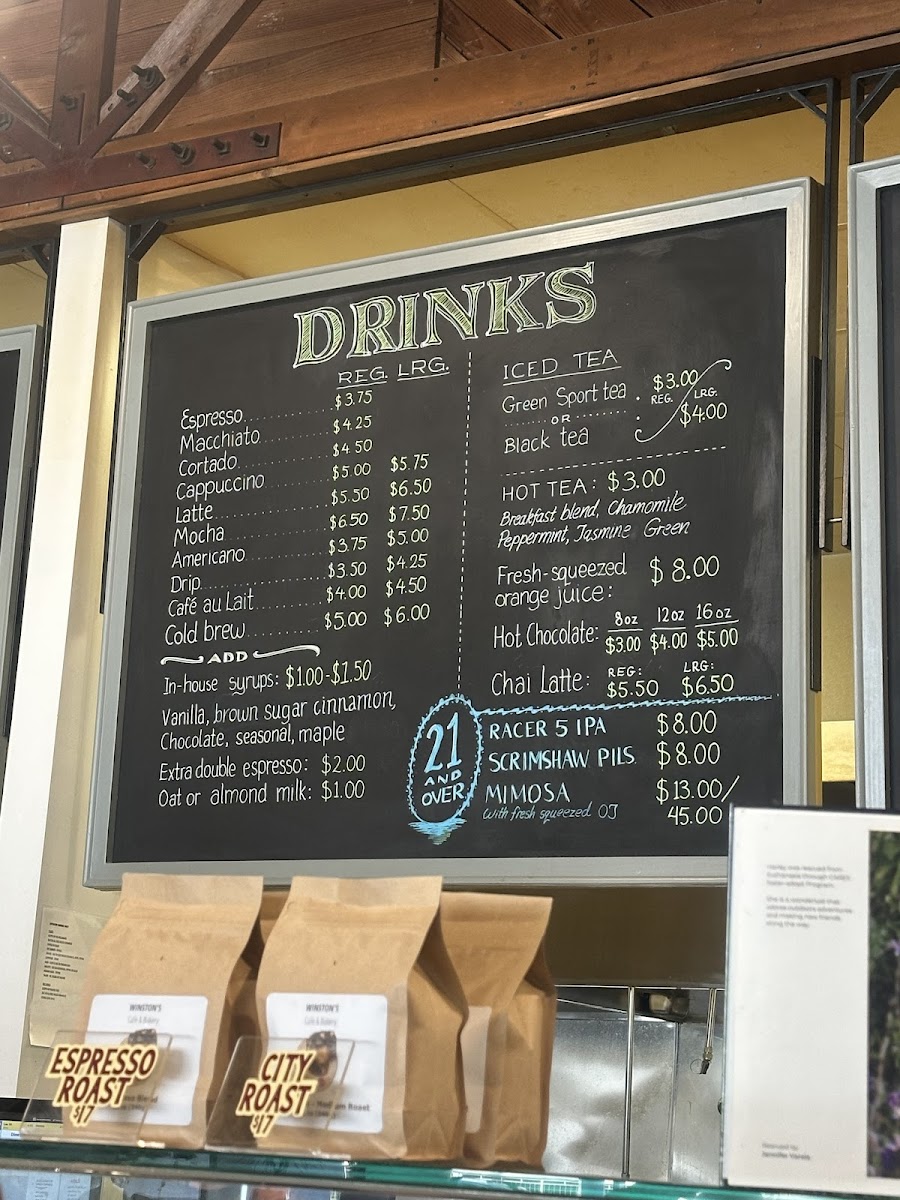 DRINKS
REG. LRG.
Espresso $3.75
Macchiato $4.25
Cortado $4.50
Cappuccino $5.00 $5.75
Latte $5.50 $6.50
Mocha $6.50 $7.50
Americano $3.75 $5.00
Drip $3.50 $4.25
Café au Lait $4.00 $4.50
Cold brew $5.00 $6.00
ADD
In-house syrups: $1.00-$1.50
Vanilla, brown sugar cinnamon,
Chocolate, seasonal, maple
Extra double espresso: $2.00
Oat or almond milk: $1.00
ICED TEA
Green Sport tea
OR
Black tea
$3.00
REG.
LRG.
$4.00
HOT TEA: $3.00
Breakfast blend, Chamomile
Peppermint, Jasmine Green
Fresh-squeezed
orange juice: $8.00
8oz 12oz 16oz
Hot Chocolate: $3.00 $4.00 $5.00
REG: LRG:
Chai Latte: $5.50 $6.50
21
AND
OVER
RACER 5 IPA $8.00
SCRIMSHAW PILS $8.00
MIMOSA $13.00/
with fresh squeezed OJ 45.00
WINSTON'S
Café & Bakery
ESPRESSO
ROAST
$17
WINSTON'S
Café & Bakery
CITY
ROAST
$17
Roast